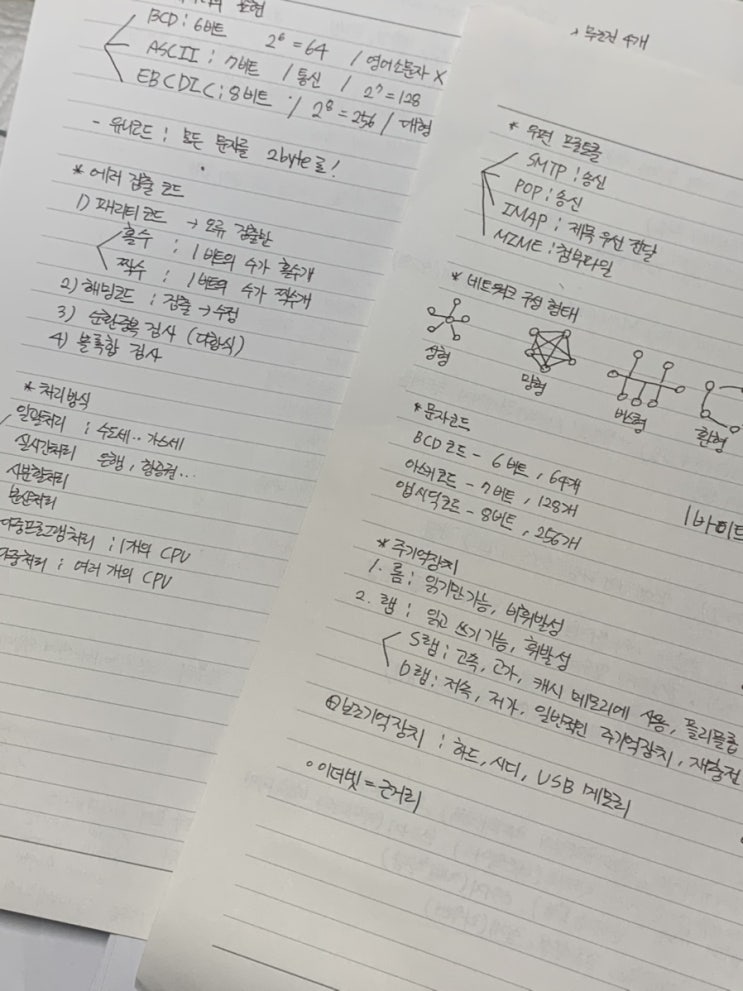 표현
BCD : 6비트 2⁶ = 64 / 영어소문자 X
ASCII : 7비트 / 통신 / 2⁷ = 128
EBCDIC : 8비트 / 2⁸ = 256 / 대형
- 유니코드 : 모든 문자를 2byte로!
* 에러 검출 코드
1) 패리티코드 → 오류 검출만
홀수 : 1 비트의 수가 홀수개
짝수 : 1 비트의 수가 짝수개
2) 해밍코드 : 검출 → 수정
3) 순환중복 검사 (다항식)
4) 블록합 검사
* 처리방식
일괄처리 : 수도세.. 가스세
실시간처리 은행, 항공권...
시분할처리
분산처리
다중프로그램처리 : 1개의 CPU
다중처리 : 여러 개의 CPU
무조건 4개
* 우편 프로토콜
SMTP : 송신
POP : 송신
IMAP : 제목 우선 전달
MIME : 첨부파일
* 네트워크 구성 형태
성형
망형
버스형
환형
* 문자코드
BCD 코드 - 6비트, 64개
아스키코드 - 7비트, 128개
엡시딕코드 - 8비트, 256개
1바이트
* 주기억장치
1. 롬 : 읽기만 가능, 비휘발성
2. 램 : 읽고 쓰기 가능, 휘발성
S램 : 고속, 고가, 캐시 메모리에 사용, 플리플롭
D램 : 저속, 저가, 일반적인 주기억장치, 재충전
⊕ 보조기억장치 : 하드, 시디, USB 메모리
◦ 이더넷 = 근거리